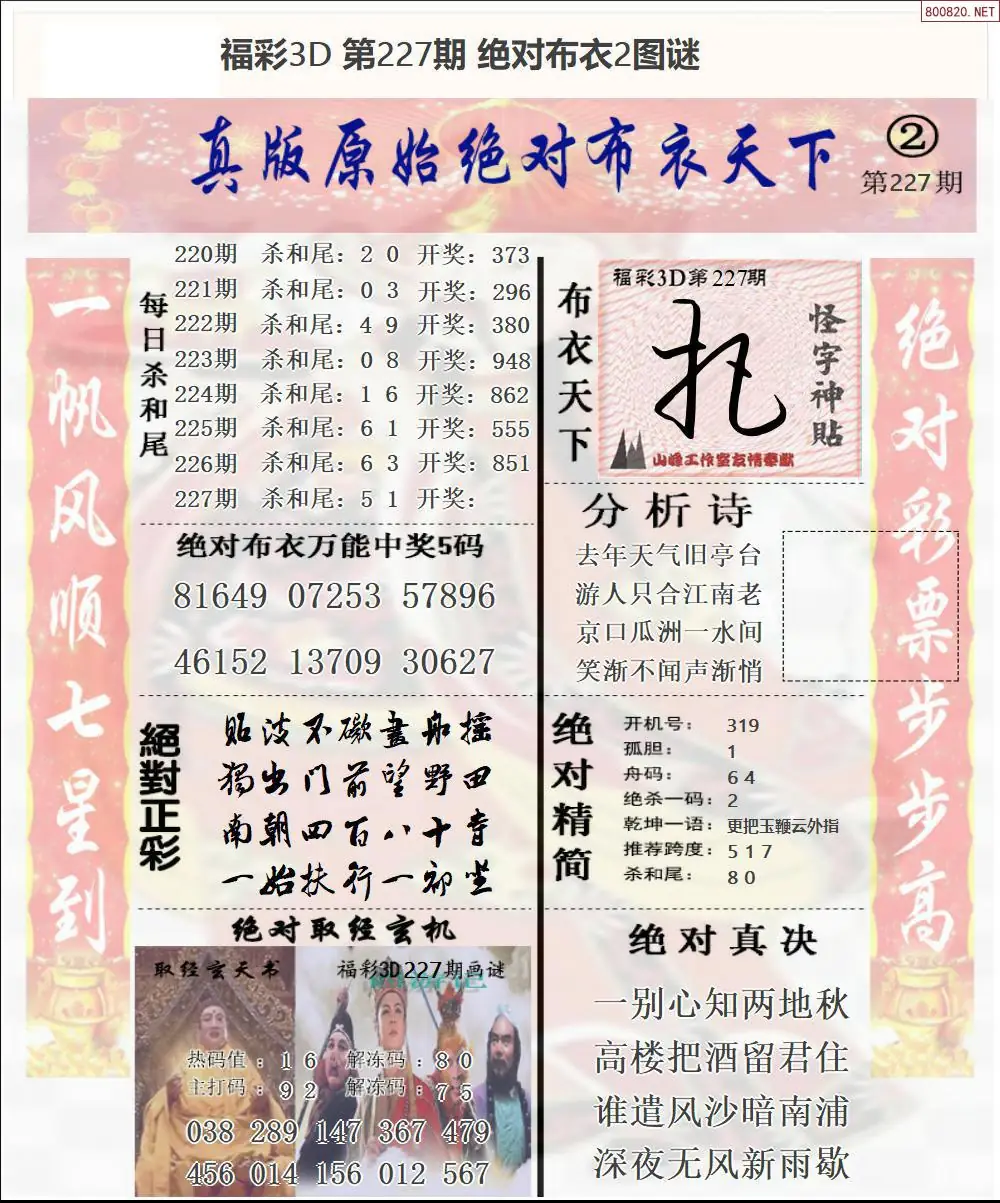 800820.NET
福彩3D 第227期 绝对布衣2图谜
真版原始绝对布衣天下
②
第227期
一帆风顺七星到
每日杀和尾
220期 杀和尾：2 0 开奖：373
221期 杀和尾：0 3 开奖：296
222期 杀和尾：4 9 开奖：380
223期 杀和尾：0 8 开奖：948
224期 杀和尾：1 6 开奖：862
225期 杀和尾：6 1 开奖：555
226期 杀和尾：6 3 开奖：851
227期 杀和尾：5 1 开奖：
绝对布衣万能中奖5码
81649 07253 57896
46152 13709 30627
絕對正彩
貼波不礙畫舟摇
獨出门前望野田
南朝四百八十寺
一始扶行一初坐
绝对取经玄机
取经玄天书
福彩3D227期画谜
热码值：1 6 解冻码：8 0
主打码：9 2 解冻码：7 5
038 289 147 367 479
456 014 156 012 567
布衣天下
福彩3D第227期
怪字神貼
山峰工作室友情奉献
分析诗
去年天气旧亭台
游人只合江南老
京口瓜洲一水间
笑渐不闻声渐悄
绝对精简
开机号：319
孤胆：1
舟码：6 4
绝杀一码：2
乾坤一语：更把玉鞭云外指
推荐跨度：5 1 7
杀和尾：8 0
绝对真决
一别心知两地秋
高楼把酒留君住
谁遣风沙暗南浦
深夜无风新雨歇
绝对彩票步步高